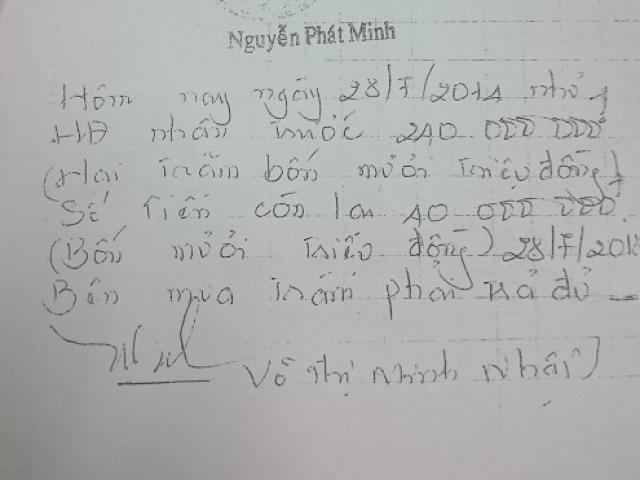 Nguyễn Phát Minh
Hôm nay ngày 28/7/2014
HĐ nhận trước 240 000 000đ
(Hai trăm bốn mươi triệu đồng)
Số tiền còn lại 40 000 000đ
(Bốn mươi triệu đồng) 28/7/201
Bên mua phải trả đủ
Võ Thị Minh Nhật